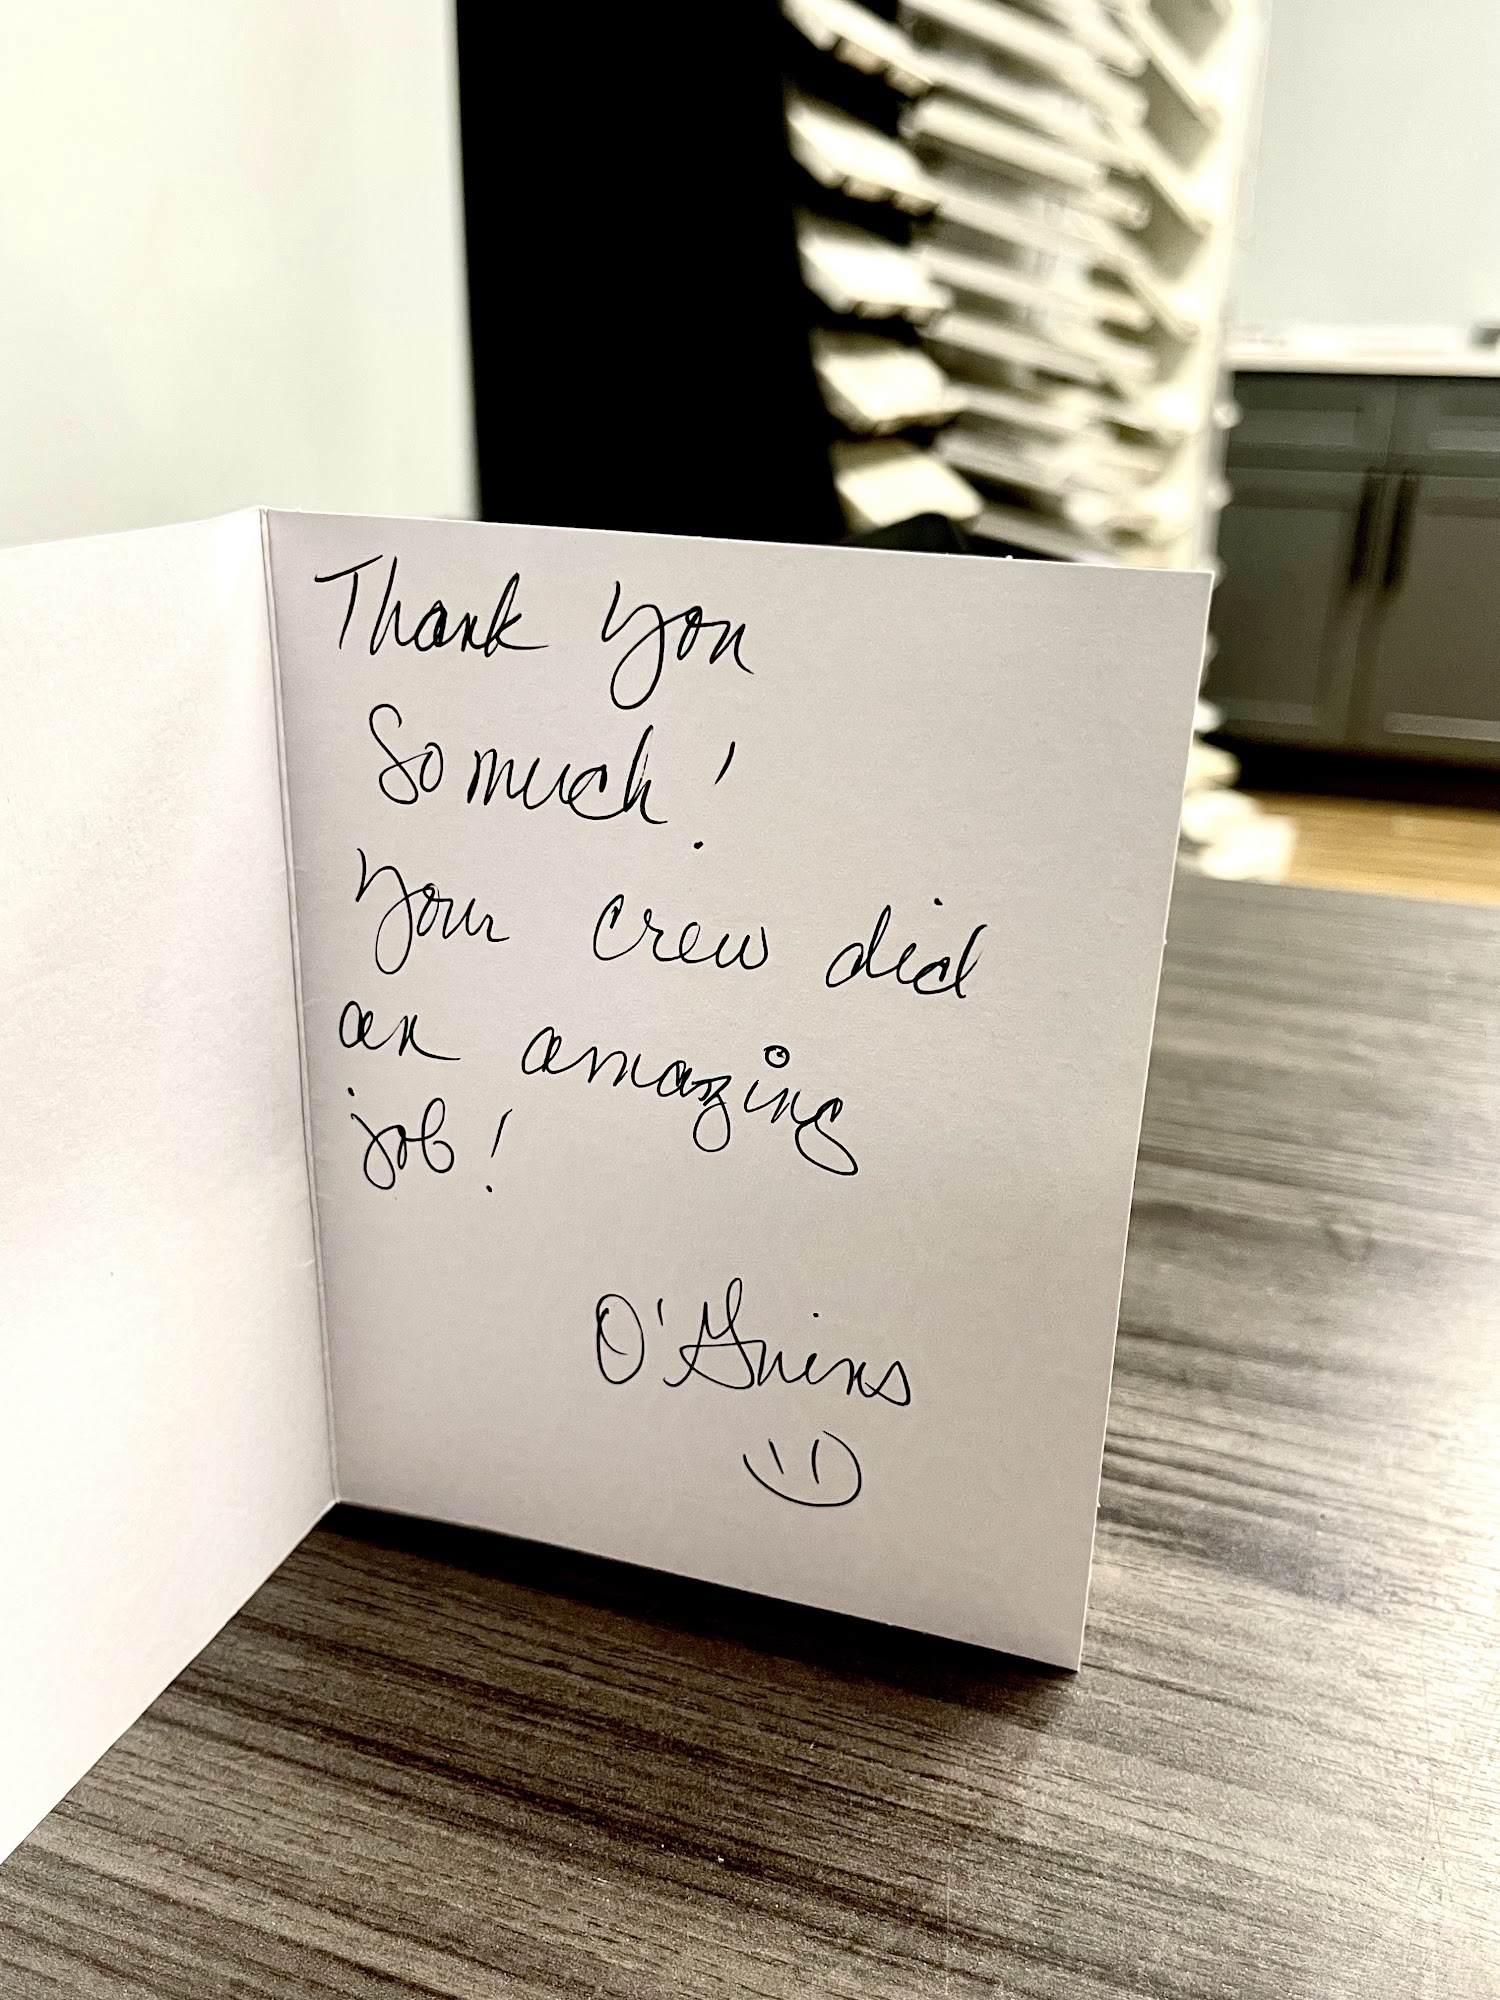 Thank you
So much!
Your crew did
an amazing
job!
O'Guins